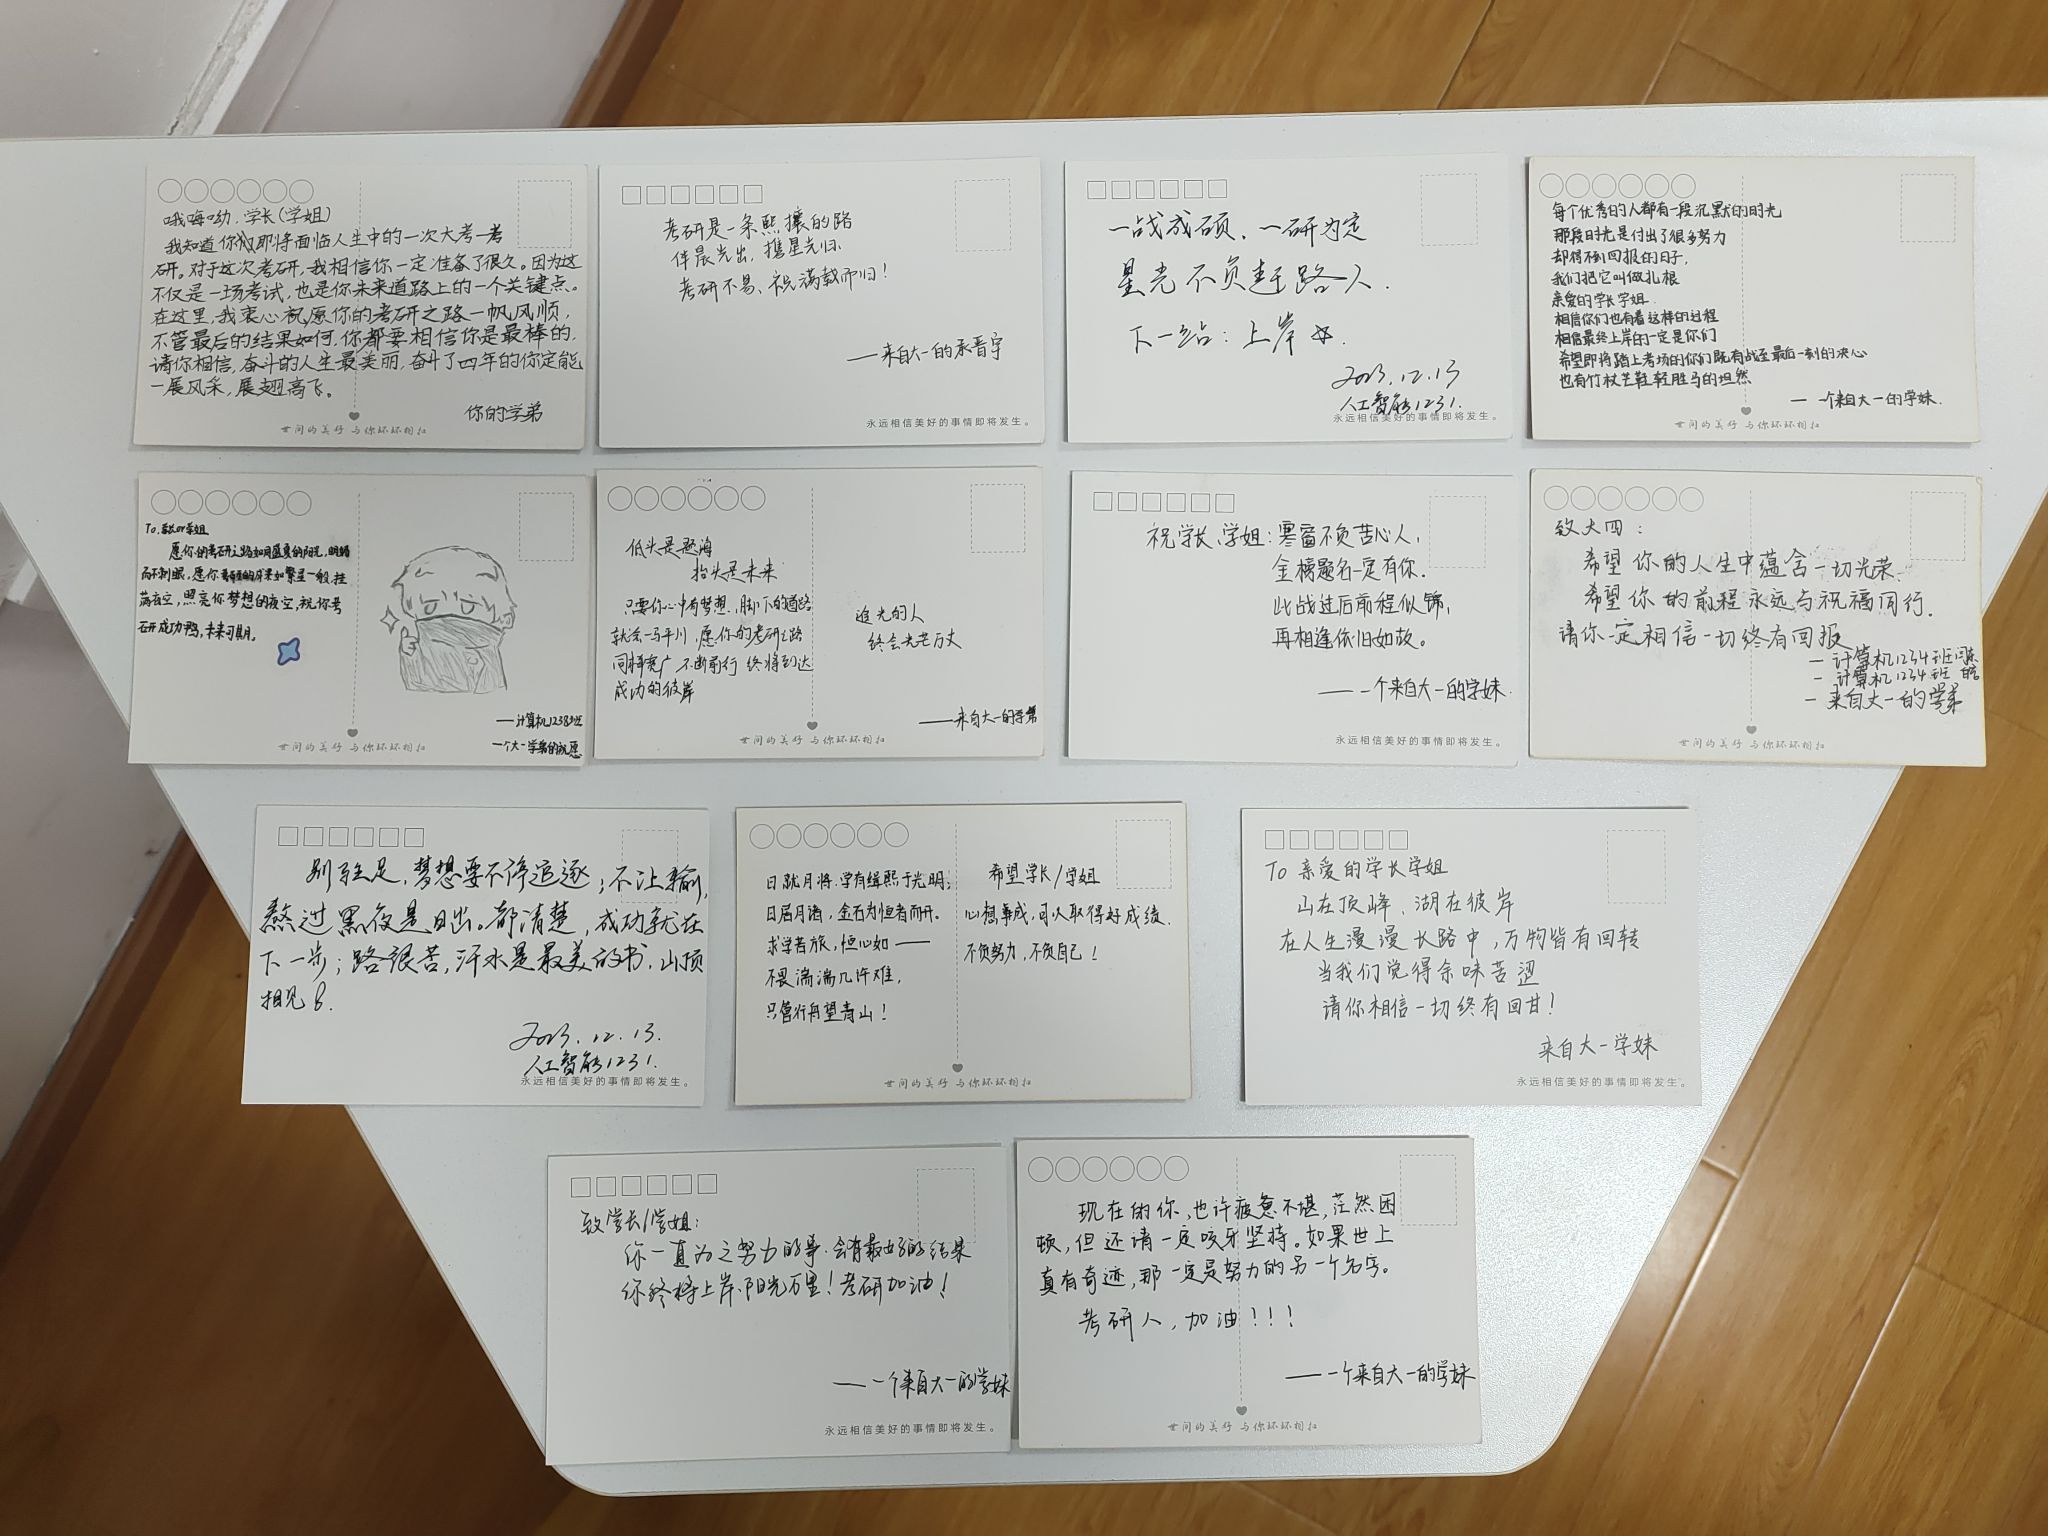 哦嗨呦,学长(学姐)
我知道你们即将面临人生中的一次大考—考
研。对于这次考研,我相信你一定准备了很久。因为这
不仅是一场考试,也是你未来道路上的一个关键点。
在这里,我衷心祝愿你的考研之路一帆风顺,
不管最后的结果如何,你都要相信你是最棒的,
请你相信,奋斗的人生最美丽,奋斗了四年的你定能
一展风采,展翅高飞。
你的学弟
世间的美好 与你环环相扣
考研是一条熙攘的路
伴晨光出,携星光归,
考研不易、祝满载而归!
——来自大一的承晋宇
永远相信美好的事情即将发生。
一战成硕、一研为定
星光不负赶路人.
下一站:上岸☆.
2023.12.13
人工智能1231.
永远相信美好的事情即将发生。
每个优秀的人都有一段沉默的时光
那段时光是付出了很多努力
却得不到回报的日子,
我们把它叫做扎根
亲爱的学长学姐.
相信你们也有着这样的过程
相信最终上岸的一定是你们
希望即将踏上考场的你们既有战至最后一刻的决心
也有竹杖芒鞋轻胜马的坦然
— 一个来自大一的学妹.
世间的美好 与你环环相扣
To.学长or学姐
愿你的考研之路如同盛夏的阳光,明媚
而不刺眼,愿你考研的成果如繁星一般,挂
满夜空,照亮你梦想的夜空,祝你考
研成功鸭,未来可期。
——计算机1238班
一个大一学弟的祝愿
世间的美好 与你环环相扣
低头是题海
抬头是未来
只要你心中有梦想,脚下的道路
就会一马平川,愿你的考研之路
同样宽广 不断前行 终将到达
成功的彼岸
追光的人
终会光芒万丈
——来自大一的学弟
世间的美好 与你环环相扣
祝学长、学姐:寒窗不负苦心人,
金榜题名一定有你.
此战过后前程似锦,
再相逢依旧如故。
——一个来自大一的学妹.
永远相信美好的事情即将发生。
致大四:
希望你的人生中蕴含一切光荣.
希望你的前程永远与祝福同行.
请你一定相信一切终有回报
— 计算机1234班
— 计算机1234班
— 来自大一的学弟
世间的美好 与你环环相扣
别驻足,梦想要不停追逐;不认输,
熬过黑夜是日出。都清楚,成功就在
下一步;路很苦,汗水是最美的书,山顶
相见
2023.12.13.
人工智能1231.
永远相信美好的事情即将发生。
日就月将,学有缉熙于光明;
日居月诸,金石为恒者而开。
求学苦旅,恒心如一——
不畏湍湍几许难,
只管行舟望青山!
希望学长/学姐
心想事成,可以取得好成绩.
不负努力,不负自己!
世间的美好 与你环环相扣
To 亲爱的学长学姐
山在顶峰、湖在彼岸
在人生漫漫长路中,万物皆有回转
当我们觉得余味苦涩
请你相信一切终有回甘!
来自大一学妹
永远相信美好的事情即将发生。
致学长/学姐:
你一直为之努力的事.会有最好的结果
你终将上岸.阳光万里!考研加油!
——一个来自大一的学妹
永远相信美好的事情即将发生。
现在的你,也许疲惫不堪,茫然困
顿,但还请一定咬牙坚持。如果世上
真有奇迹,那一定是努力的另一个名字。
考研人,加油!!!
——一个来自大一的学妹
世间的美好 与你环环相扣